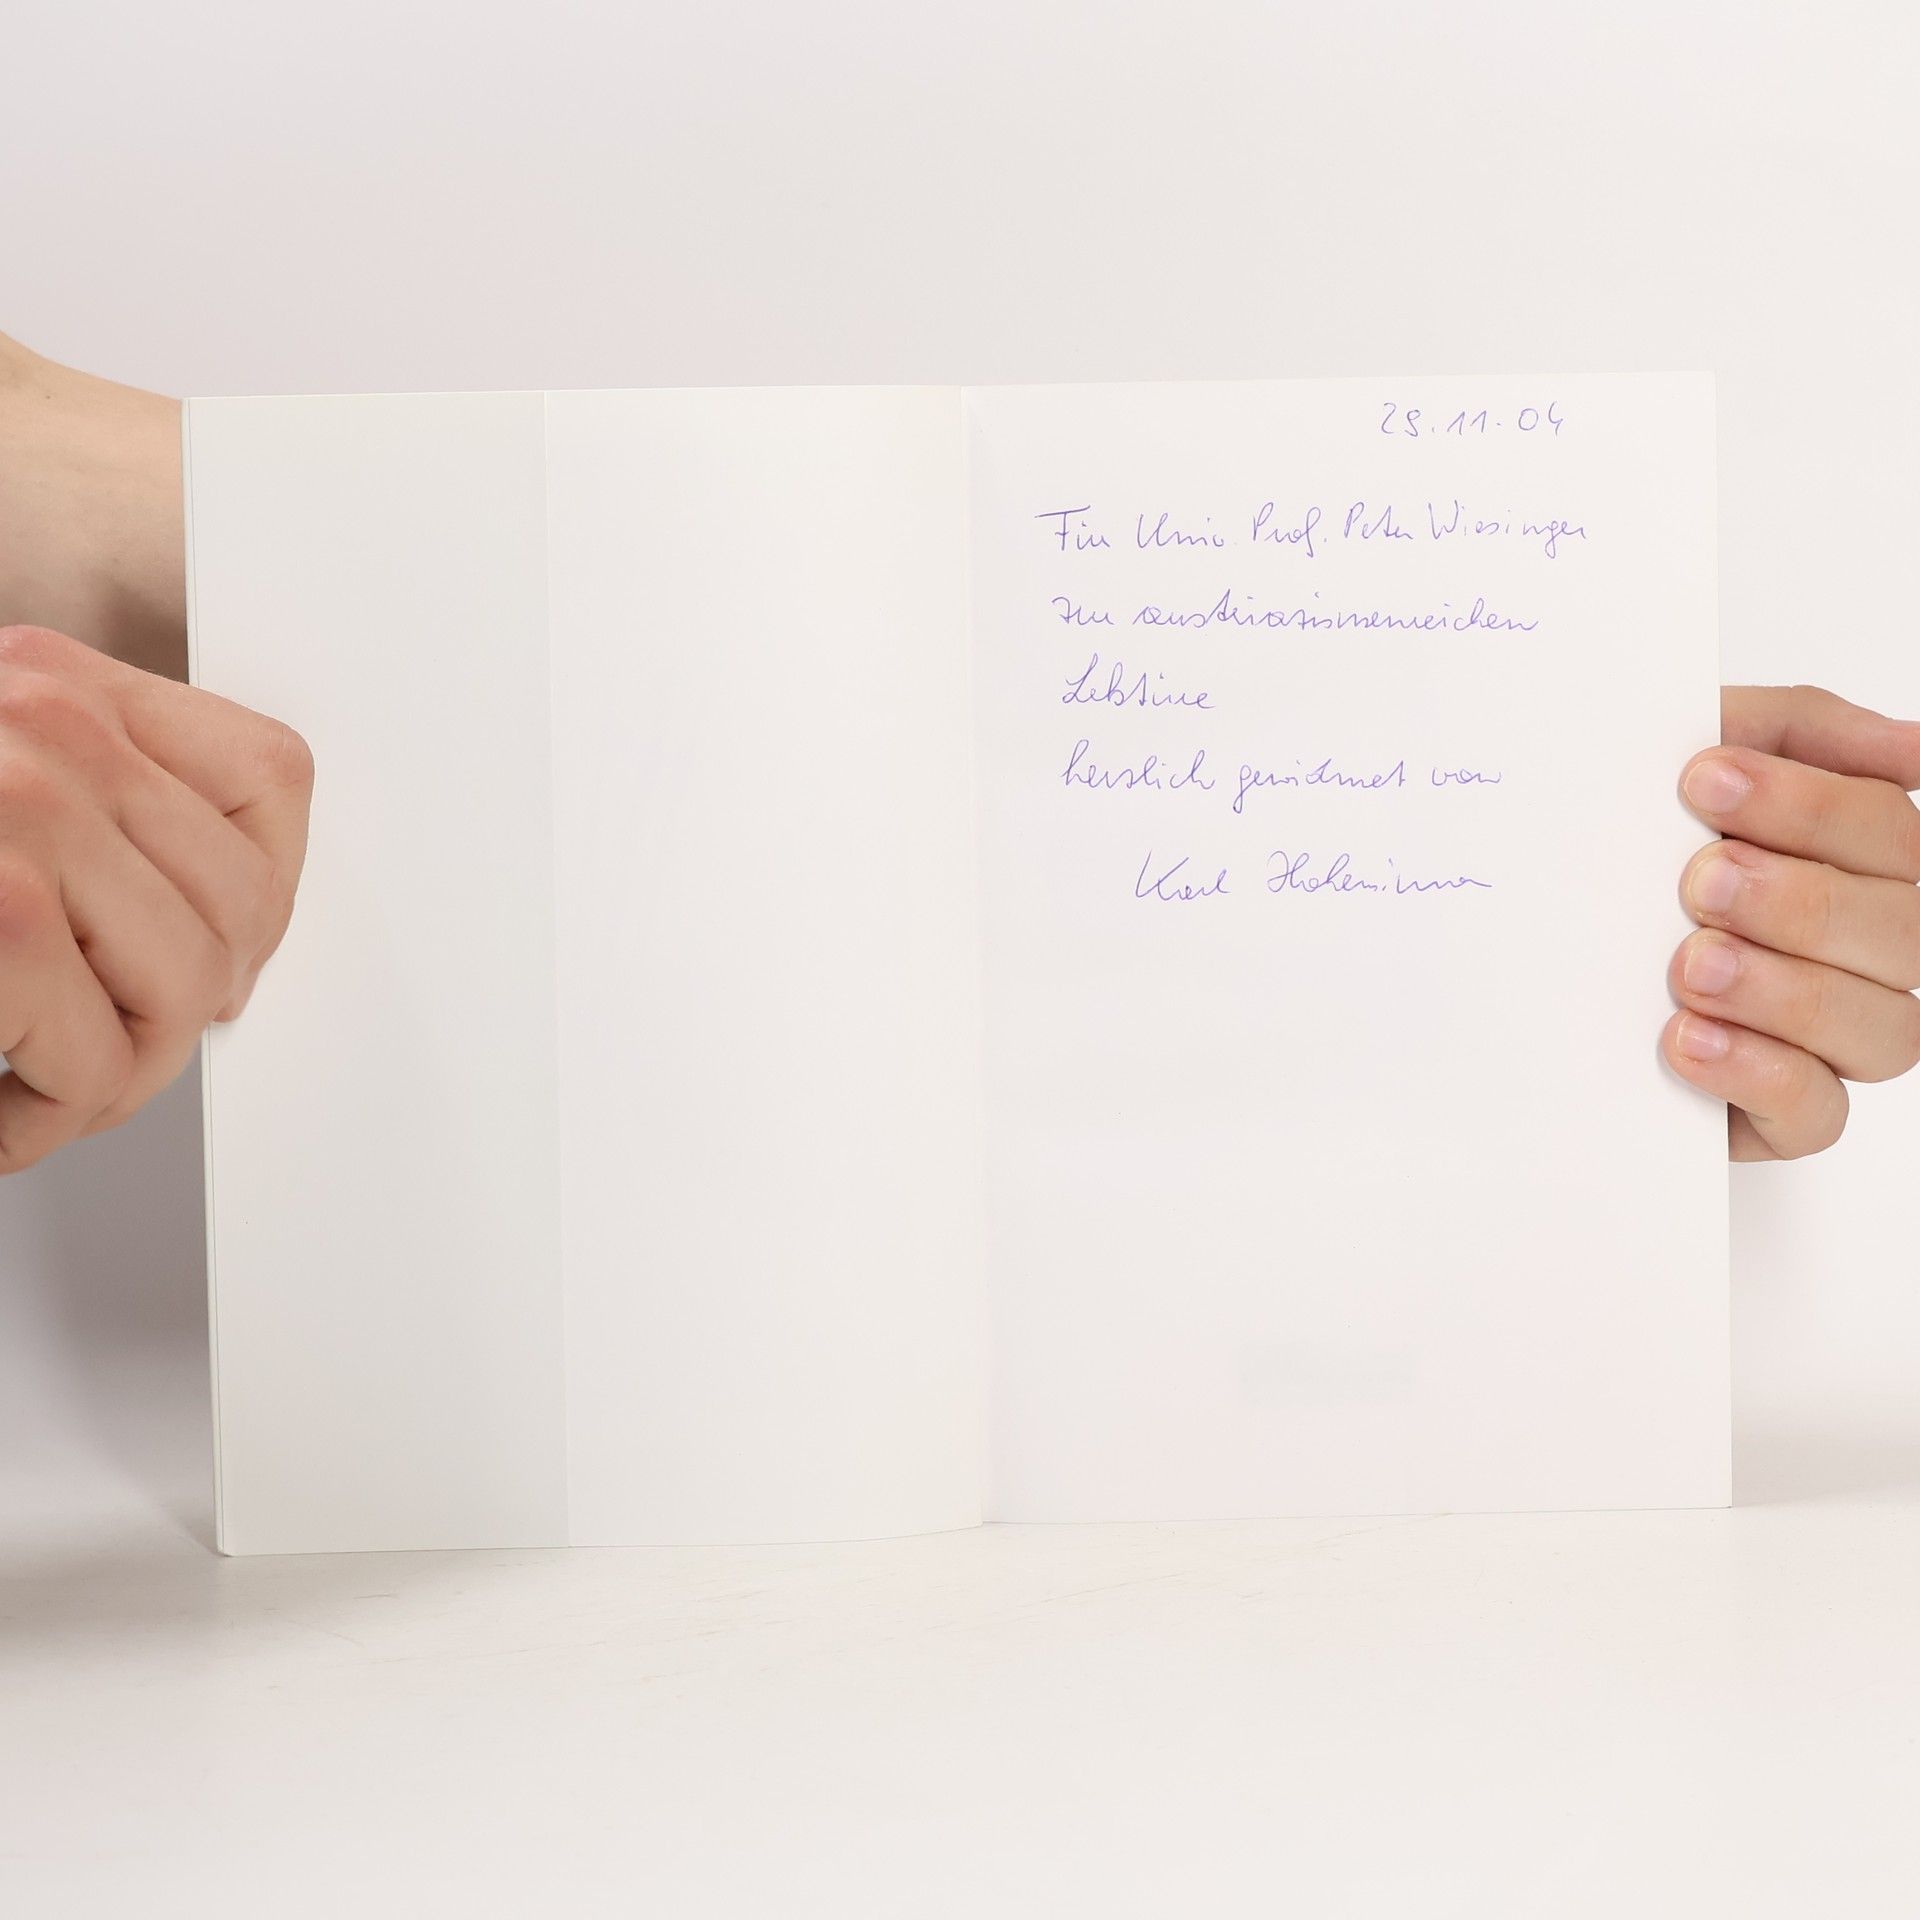 29.11.04
Für Univ. Prof. Peter Wiesinger
zur austriazismenreichen
Lektüre
herzlich gewidmet von
Karl Hohensinner